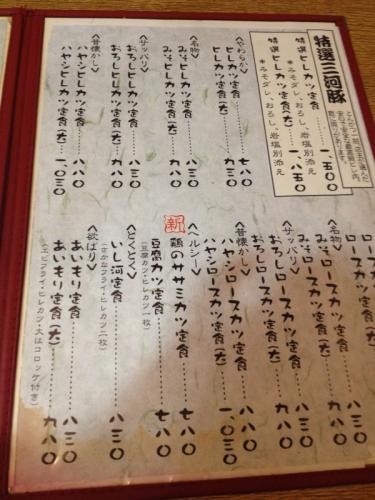 特選三河豚
特選ヒレカツ定食 一、五〇〇
＊みそダレ、おろし、岩塩別添え
特選ヒレカツ定食(大) 一、八五〇
＊みそダレ、おろし、岩塩別添え
<やわらか>
ヒレカツ定食 七八〇
ヒレカツ定食(大) 九三〇
<名物>
みそヒレカツ定食 八三〇
みそヒレカツ定食(大) 九八〇
<サッパリ>
おろしヒレカツ定食 八三〇
おろしヒレカツ定食(大) 九八〇
<昔懐かし>
ハヤシヒレカツ定食 八八〇
ハヤシヒレカツ定食(大) 一、〇三〇
ロースカツ定食
<名物>
みそロースカツ定食 八三〇
みそロースカツ定食(大) 九八〇
<サッパリ>
おろしロースカツ定食 八三〇
おろしロースカツ定食(大) 九八〇
<昔懐かし>
ハヤシロースカツ定食 八八〇
ハヤシロースカツ定食(大) 一、〇三〇
<ヘルシー>
新 鶏のササミカツ定食 七八〇
豆腐カツ定食 七八〇
(豆腐カツ・ヒレカツ一枚)
<とくとく>
いし河定食 八三〇
(さかなフライ・ヒレカツ二枚)
<欲ばり>
あいもり定食 八三〇
あいもり定食(大) 九八〇
(エビフライ・ヒレカツ・大はコロッケ付き)